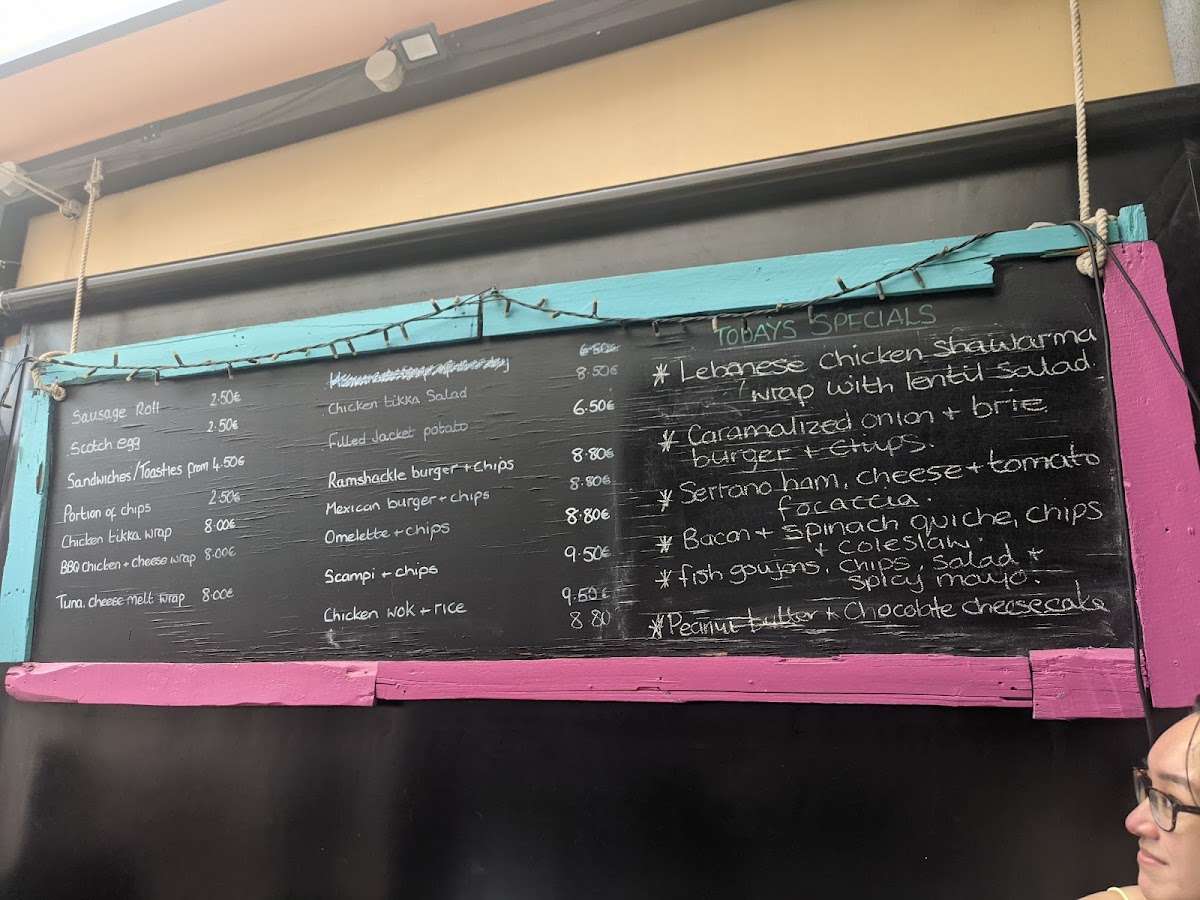 Sausage Roll 2.50€
Scotch egg 2.50€
Sandwiches/Toasties from 4.50€
Portion of chips 2.50€
Chicken tikka wrap 8.00€
BBQ chicken + cheese wrap 8.00€
Tuna cheese melt wrap 8.00€
6.50€
Chicken tikka Salad 8.50€
Filled Jacket potato 6.50€
Ramshackle burger + chips 8.80€
Mexican burger + chips 8.80€
Omelette + chips 8.80€
Scampi + chips 9.50€
Chicken wok + rice 9.50€
8.80
TODAYS SPECIALS
* Lebanese chicken shawarma
wrap with lentil salad.
* Caramalized onion + brie
burger + chips.
* Serrano ham, cheese + tomato
focaccia.
* Bacon + spinach quiche, chips
+ coleslaw.
* fish goujons, chips, salad +
spicy mayo.
* Peanut butter + Chocolate cheesecake